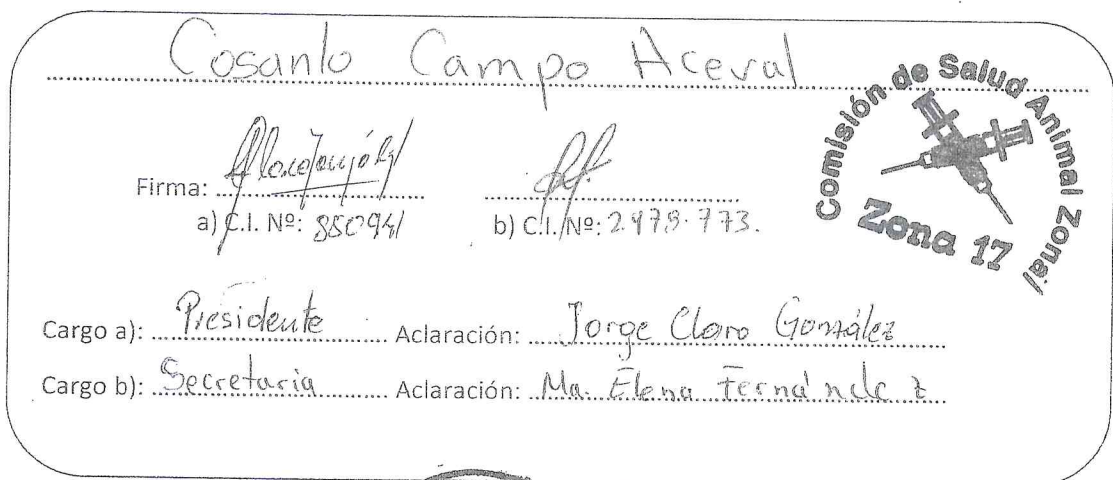 Cosanlo Campo Aceval
Comisión de Salud Animal Zonal
Zona 17
Firma:
a) C.I. Nº: 850941 b) C.I. Nº: 2.479.773.
Cargo a): Presidente Aclaración: Jorge Claro González
Cargo b): Secretaria Aclaración: Ma. Elena Fernández